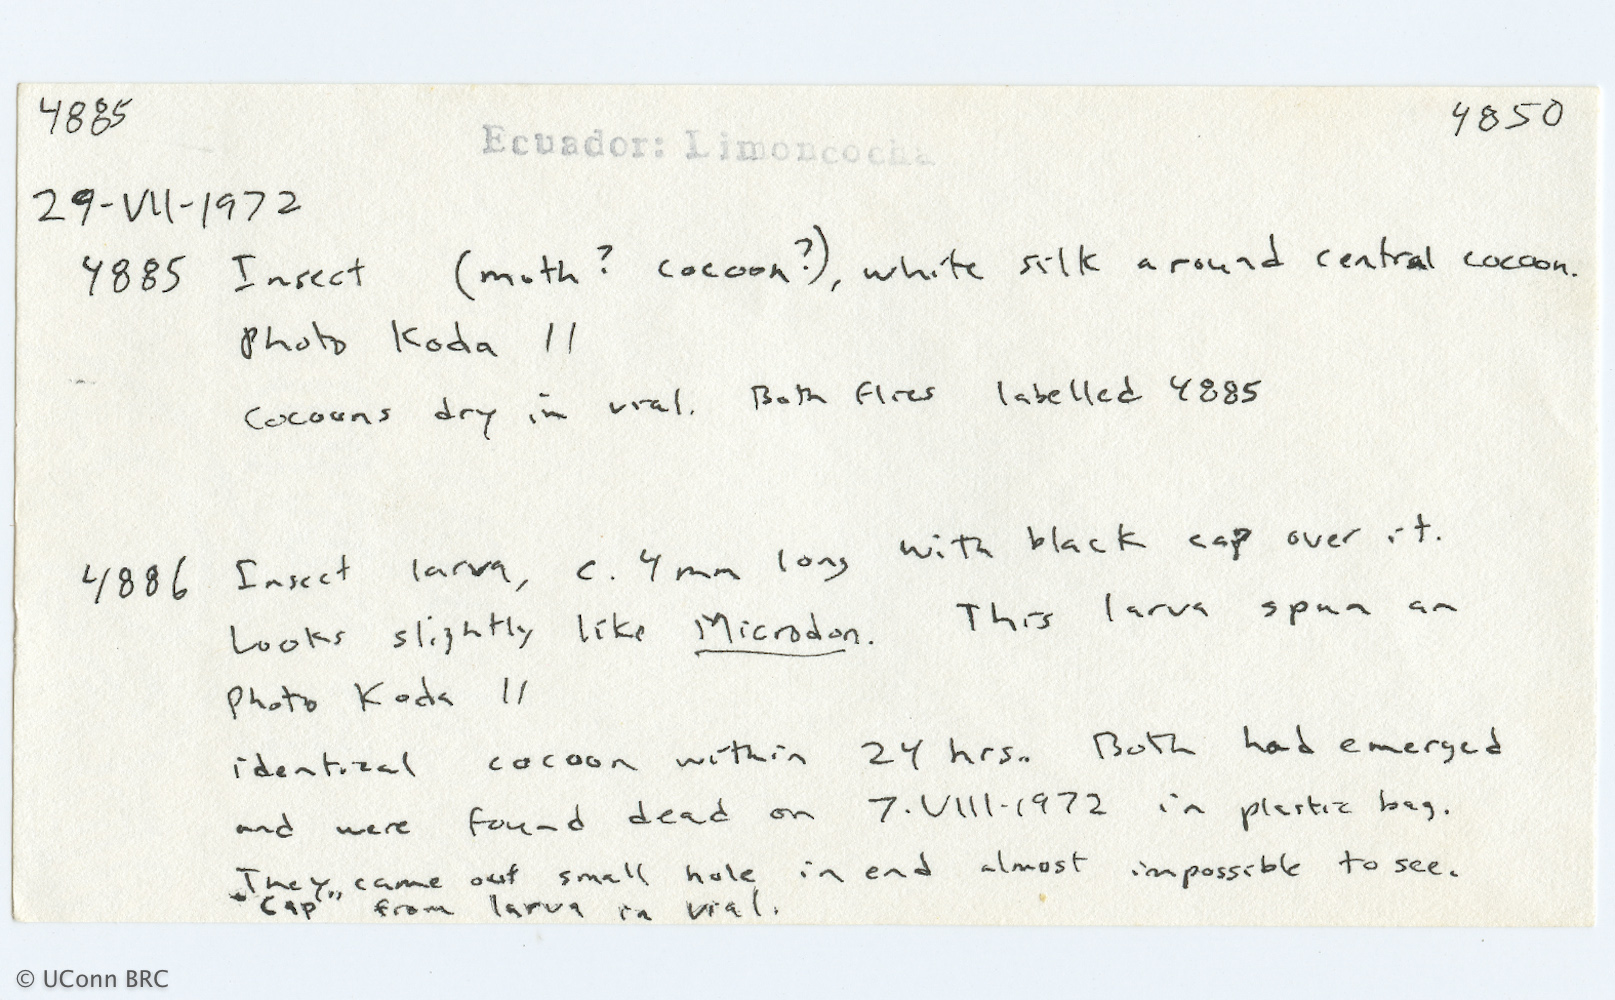 4885 4850
Ecuador: Limoncocha
29-VII-1972
4885 Insect (moth? cocoon?), white silk around central cocoon.
Photo Koda 11
Cocoons dry in vial. Both flies labelled 4885
4886 Insect larva, c. 4 mm long with black cap over it.
Looks slightly like Microdon. This larva spun an
Photo Koda 11
identical cocoon within 24 hrs. Both had emerged
and were found dead on 7.VIII-1972 in plastic bag.
They came out small hole in end almost impossible to see.
"Cap" from larva in vial.
© UConn BRC